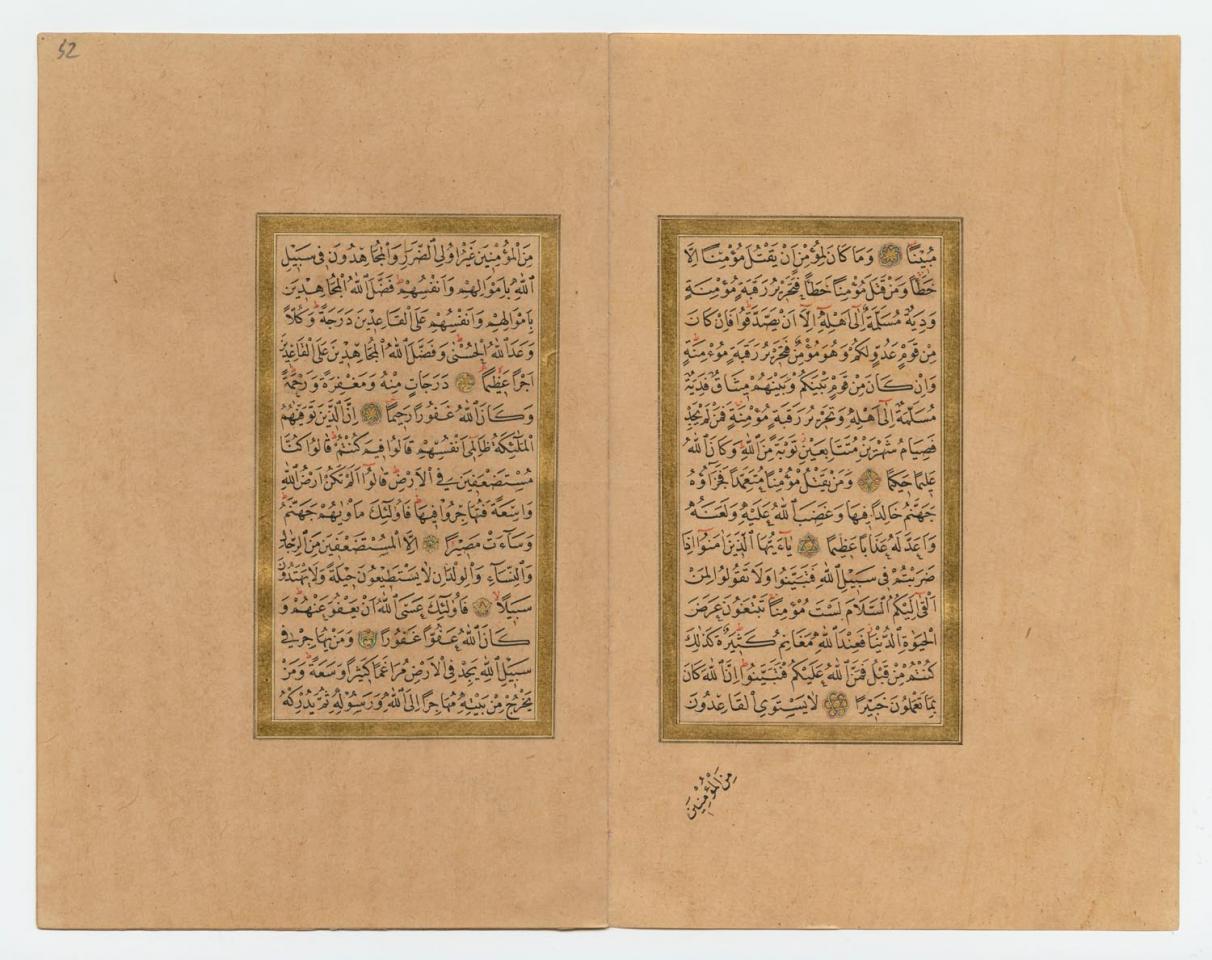 مُبٖينًا وَمَا كَانَ لِمُؤْمِنٍ اَنْ يَقْتُلَ مُؤْمِنًا اِلَّا
خَطَأً وَمَنْ قَتَلَ مُؤْمِنًا خَطَأً فَتَحْرٖيرُ رَقَبَةٍ مُؤْمِنَةٍ
وَدِيَةٌ مُسَلَّمَةٌ اِلٰٓى اَهْلِهٖٓ اِلَّٓا اَنْ يَصَّدَّقُوا فَاِنْ كَانَ
مِنْ قَوْمٍ عَدُوٍّ لَكُمْ وَهُوَ مُؤْمِنٌ فَتَحْرٖيرُ رَقَبَةٍ مُؤْمِنَةٍ
وَاِنْ كَانَ مِنْ قَوْمٍ بَيْنَكُمْ وَبَيْنَهُمْ مٖيثَاقٌ فَدِيَةٌ
مُسَلَّمَةٌ اِلٰٓى اَهْلِهٖ وَتَحْرٖيرُ رَقَبَةٍ مُؤْمِنَةٍ فَمَنْ لَمْ يَجِدْ
فَصِيَامُ شَهْرَيْنِ مُتَتَابِعَيْنِ تَوْبَةً مِنَ اللّٰهِ وَكَانَ اللّٰهُ
عَلٖيمًا حَكٖيمًا وَمَنْ يَقْتُلْ مُؤْمِنًا مُتَعَمِّدًا فَجَزَٓاؤُهُ
جَهَنَّمُ خَالِدًا فٖيهَا وَغَضِبَ اللّٰهُ عَلَيْهِ وَلَعَنَهُ
وَاَعَدَّ لَهُ عَذَابًا عَظٖيمًا يَٓا اَيُّهَا الَّذٖينَ اٰمَنُٓوا اِذَا
ضَرَبْتُمْ فٖى سَبٖيلِ اللّٰهِ فَتَبَيَّنُوا وَلَا تَقُولُوا لِمَنْ
اَلْقٰٓى اِلَيْكُمُ السَّلَامَ لَسْتَ مُؤْمِنًا تَبْتَغُونَ عَرَضَ
الْحَيٰوةِ الدُّنْيَا فَعِنْدَ اللّٰهِ مَغَانِمُ كَثٖيرَةٌ كَذٰلِكَ
كُنْتُمْ مِنْ قَبْلُ فَمَنَّ اللّٰهُ عَلَيْكُمْ فَتَبَيَّنُوا اِنَّ اللّٰهَ كَانَ
بِمَا تَعْمَلُونَ خَبٖيرًا لَا يَسْتَوِى الْقَاعِدُونَ
مِنَ الْمُؤْمِنٖينَ
52
مِنَ الْمُؤْمِنٖينَ غَيْرُ اُولِى الضَّرَرِ وَالْمُجَاهِدُونَ فٖى سَبٖيلِ
اللّٰهِ بِاَمْوَالِهِمْ وَاَنْفُسِهِمْ فَضَّلَ اللّٰهُ الْمُجَاهِدٖينَ
بِاَمْوَالِهِمْ وَاَنْفُسِهِمْ عَلَى الْقَاعِدٖينَ دَرَجَةً وَكُلًّا
وَعَدَ اللّٰهُ الْحُسْنٰى وَفَضَّلَ اللّٰهُ الْمُجَاهِدٖينَ عَلَى الْقَاعِدٖينَ
اَجْرًا عَظٖيمًا دَرَجَاتٍ مِنْهُ وَمَغْفِرَةً وَرَحْمَةً
وَكَانَ اللّٰهُ غَفُورًا رَحٖيمًا اِنَّ الَّذٖينَ تَوَفّٰيهُمُ
الْمَلٰٓئِكَةُ ظَالِمٖٓى اَنْفُسِهِمْ قَالُوا فٖيمَ كُنْتُمْ قَالُوا كُنَّا
مُسْتَضْعَفٖينَ فِى الْاَرْضِ قَالُٓوا اَلَمْ تَكُنْ اَرْضُ اللّٰهِ
وَاسِعَةً فَتُهَاجِرُوا فٖيهَا فَاُولٰٓئِكَ مَاْوٰيهُمْ جَهَنَّمُ
وَسَٓاءَتْ مَصٖيرًا اِلَّا الْمُسْتَضْعَفٖينَ مِنَ الرِّجَالِ
وَالنِّسَٓاءِ وَالْوِلْدَانِ لَا يَسْتَطٖيعُونَ حٖيلَةً وَلَا يَهْتَدُونَ
سَبٖيلًا فَاُولٰٓئِكَ عَسَى اللّٰهُ اَنْ يَعْفُوَ عَنْهُمْ وَ
كَانَ اللّٰهُ عَفُوًّا غَفُورًا وَمَنْ يُهَاجِرْ فٖى
سَبٖيلِ اللّٰهِ يَجِدْ فِى الْاَرْضِ مُرَاغَمًا كَثٖيرًا وَسَعَةً وَمَنْ
يَخْرُجْ مِنْ بَيْتِهٖ مُهَاجِرًا اِلَى اللّٰهِ وَرَسُولِهٖ ثُمَّ يُدْرِكْهُ